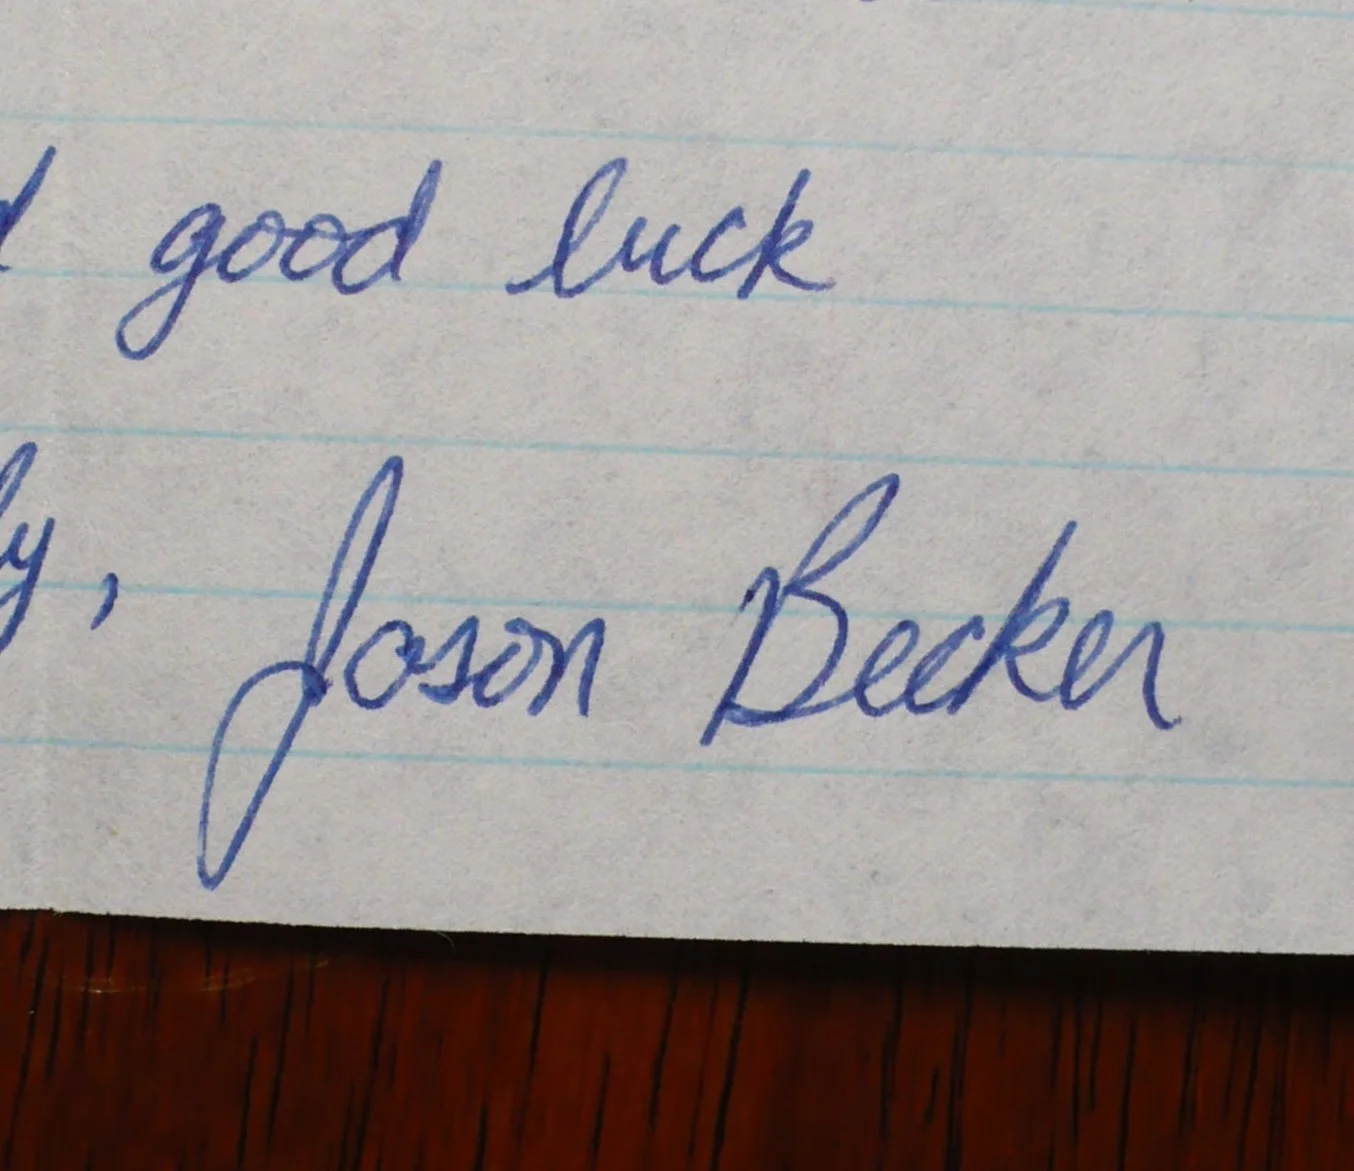 good luck
Jason Becker